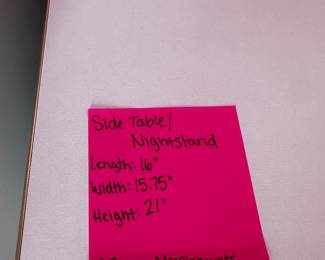 Side Table/
Nightstand
Length: 16"
Width: 15.75"
Height: 21"